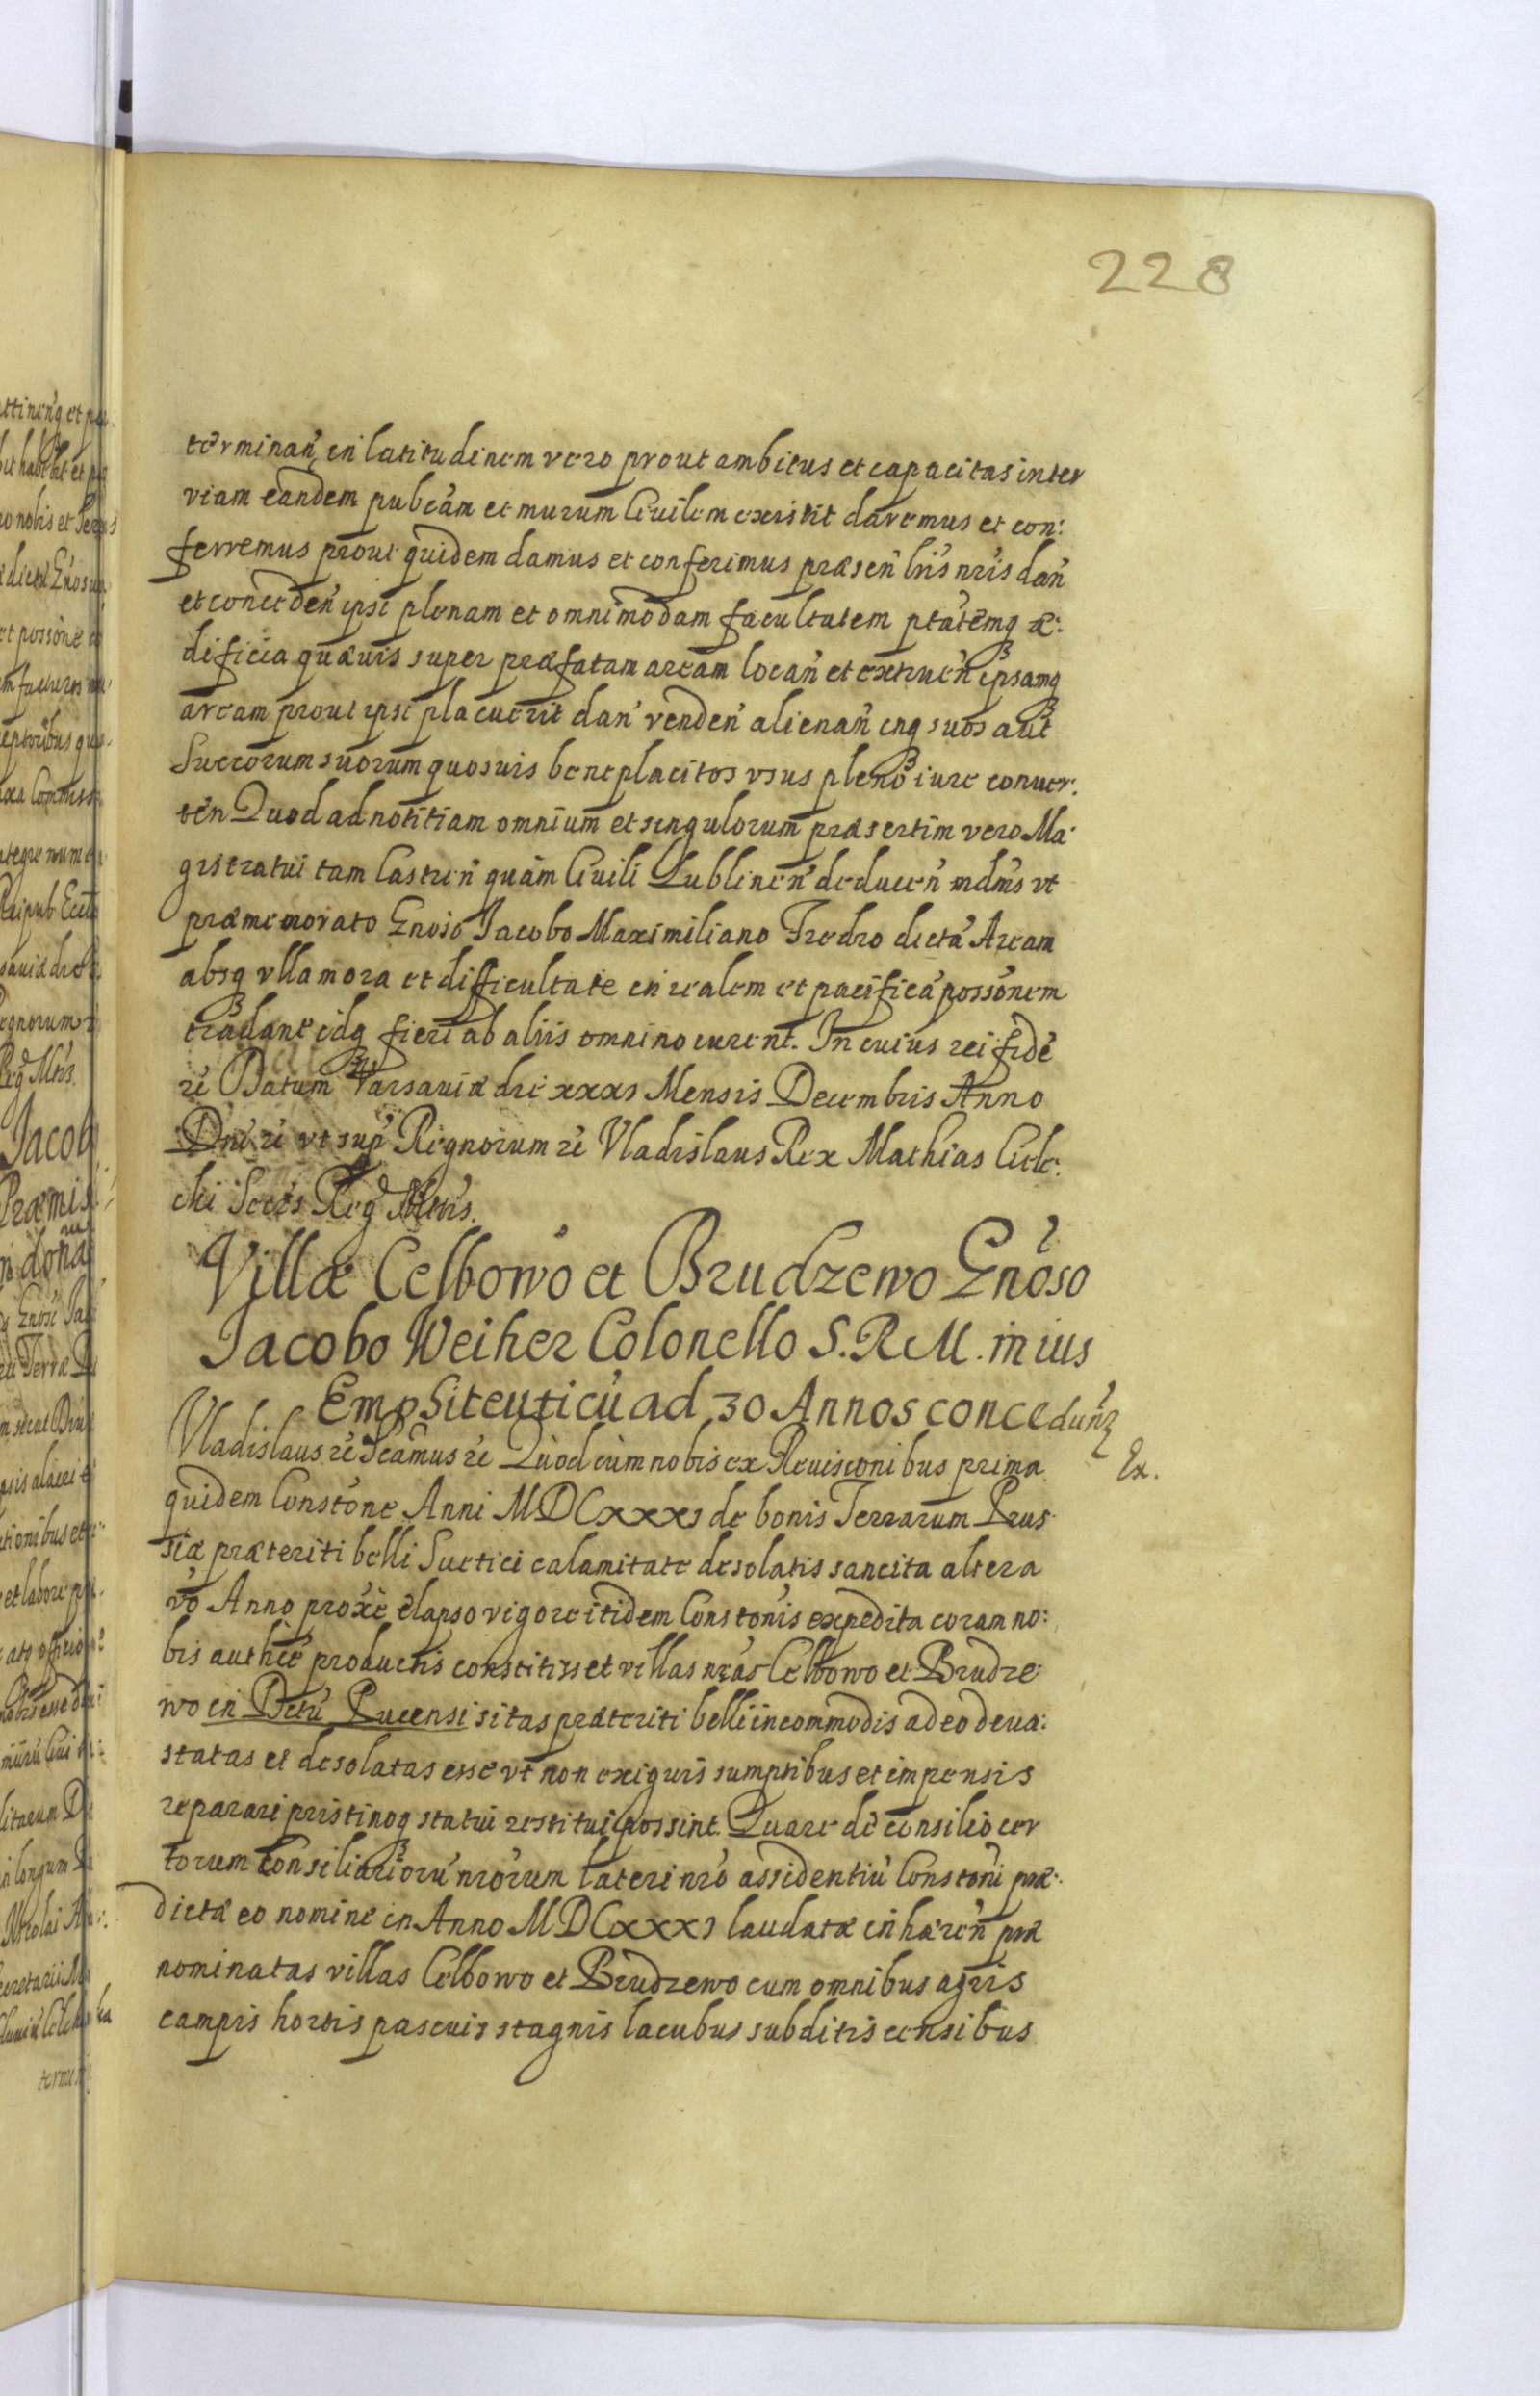 228
terminan̄ in latitudinem vero prout ambitus et capacitas inter
viam eandem pubcām et murum Ciuilem existit daremus et con:
ferremus prout quidem damus et conferimus præsen̄ lr̄is nr̄is dan̄
et conceden̄ ipsi plenam et omnimodam facultatem ptātemqȝ æ:
dificia quæuis super præfatam aream locan̄ et extruen̄ ipsamqȝ
aream prout ipsi placuerit dan̄ venden̄ alienan̄ inqȝ suos aut
Succorum suorum quosuis beneplacitos vsus pleno iure conuer:
ten̄ Quod ad notitiam omnium et singulorum præsertim vero Ma:
gistratui tam Castren̄ quam Ciuili Lublinen̄ deducen̄ mdm̄s vt
præmemorato Gnoso Jacobo Maximiliano Fredro dictā Aream
absqȝ vlla mora et difficultate in realem et pacificā possōnem
tradant idqȝ fieri ab aliis omnino curent. In cuius rei fidē
ꝛc Datum Varsauiæ die xxxı Mensis Decembris Anno
Dni ꝛc vt sup̄ Regnorum ꝛc Vladislaus Rex Mathias Ciele:
cki Secr̄s Reg Mttis.
Villæ Celbowo et Brudzewo Gnōso
Jacobo Weiher Colonello S. R M. in ius
Emphiteuticū ad 30 Annos concedun̄t
Ex.
Vladislaus ꝛc Scāmus ꝛc Quod cum nobis ex Reuisionibus prima
quidem Constōne Anni MDCxxxı de bonis Terrarum Prus
siæ præteriti belli Suetici calamitate desolatis sancita altera
vō Anno proxē elapso vigore itidem Constōnis expedita coram no:
bis authcē productis constitisset villas nr̄as Celbowo et Brudze
wo in Dctū Pucensi sitas præteriti belli incommodis adeo deua:
statas et desolatas esse vt non exiguis sumptibus et impensis
reparari pristinoqȝ statui restitui possint. Quare de consilio cer
torum Consiliariorū nrōrum lateri nrō assidentiū Constōni præ:
dictæ eo nomine in Anno MDCxxxı laudatæ inhæren̄ præ
nominatas villas Celbowo et Brudzewo cum omnibus agris
campis hortis pascuis stagnis lacubus subditis censibus